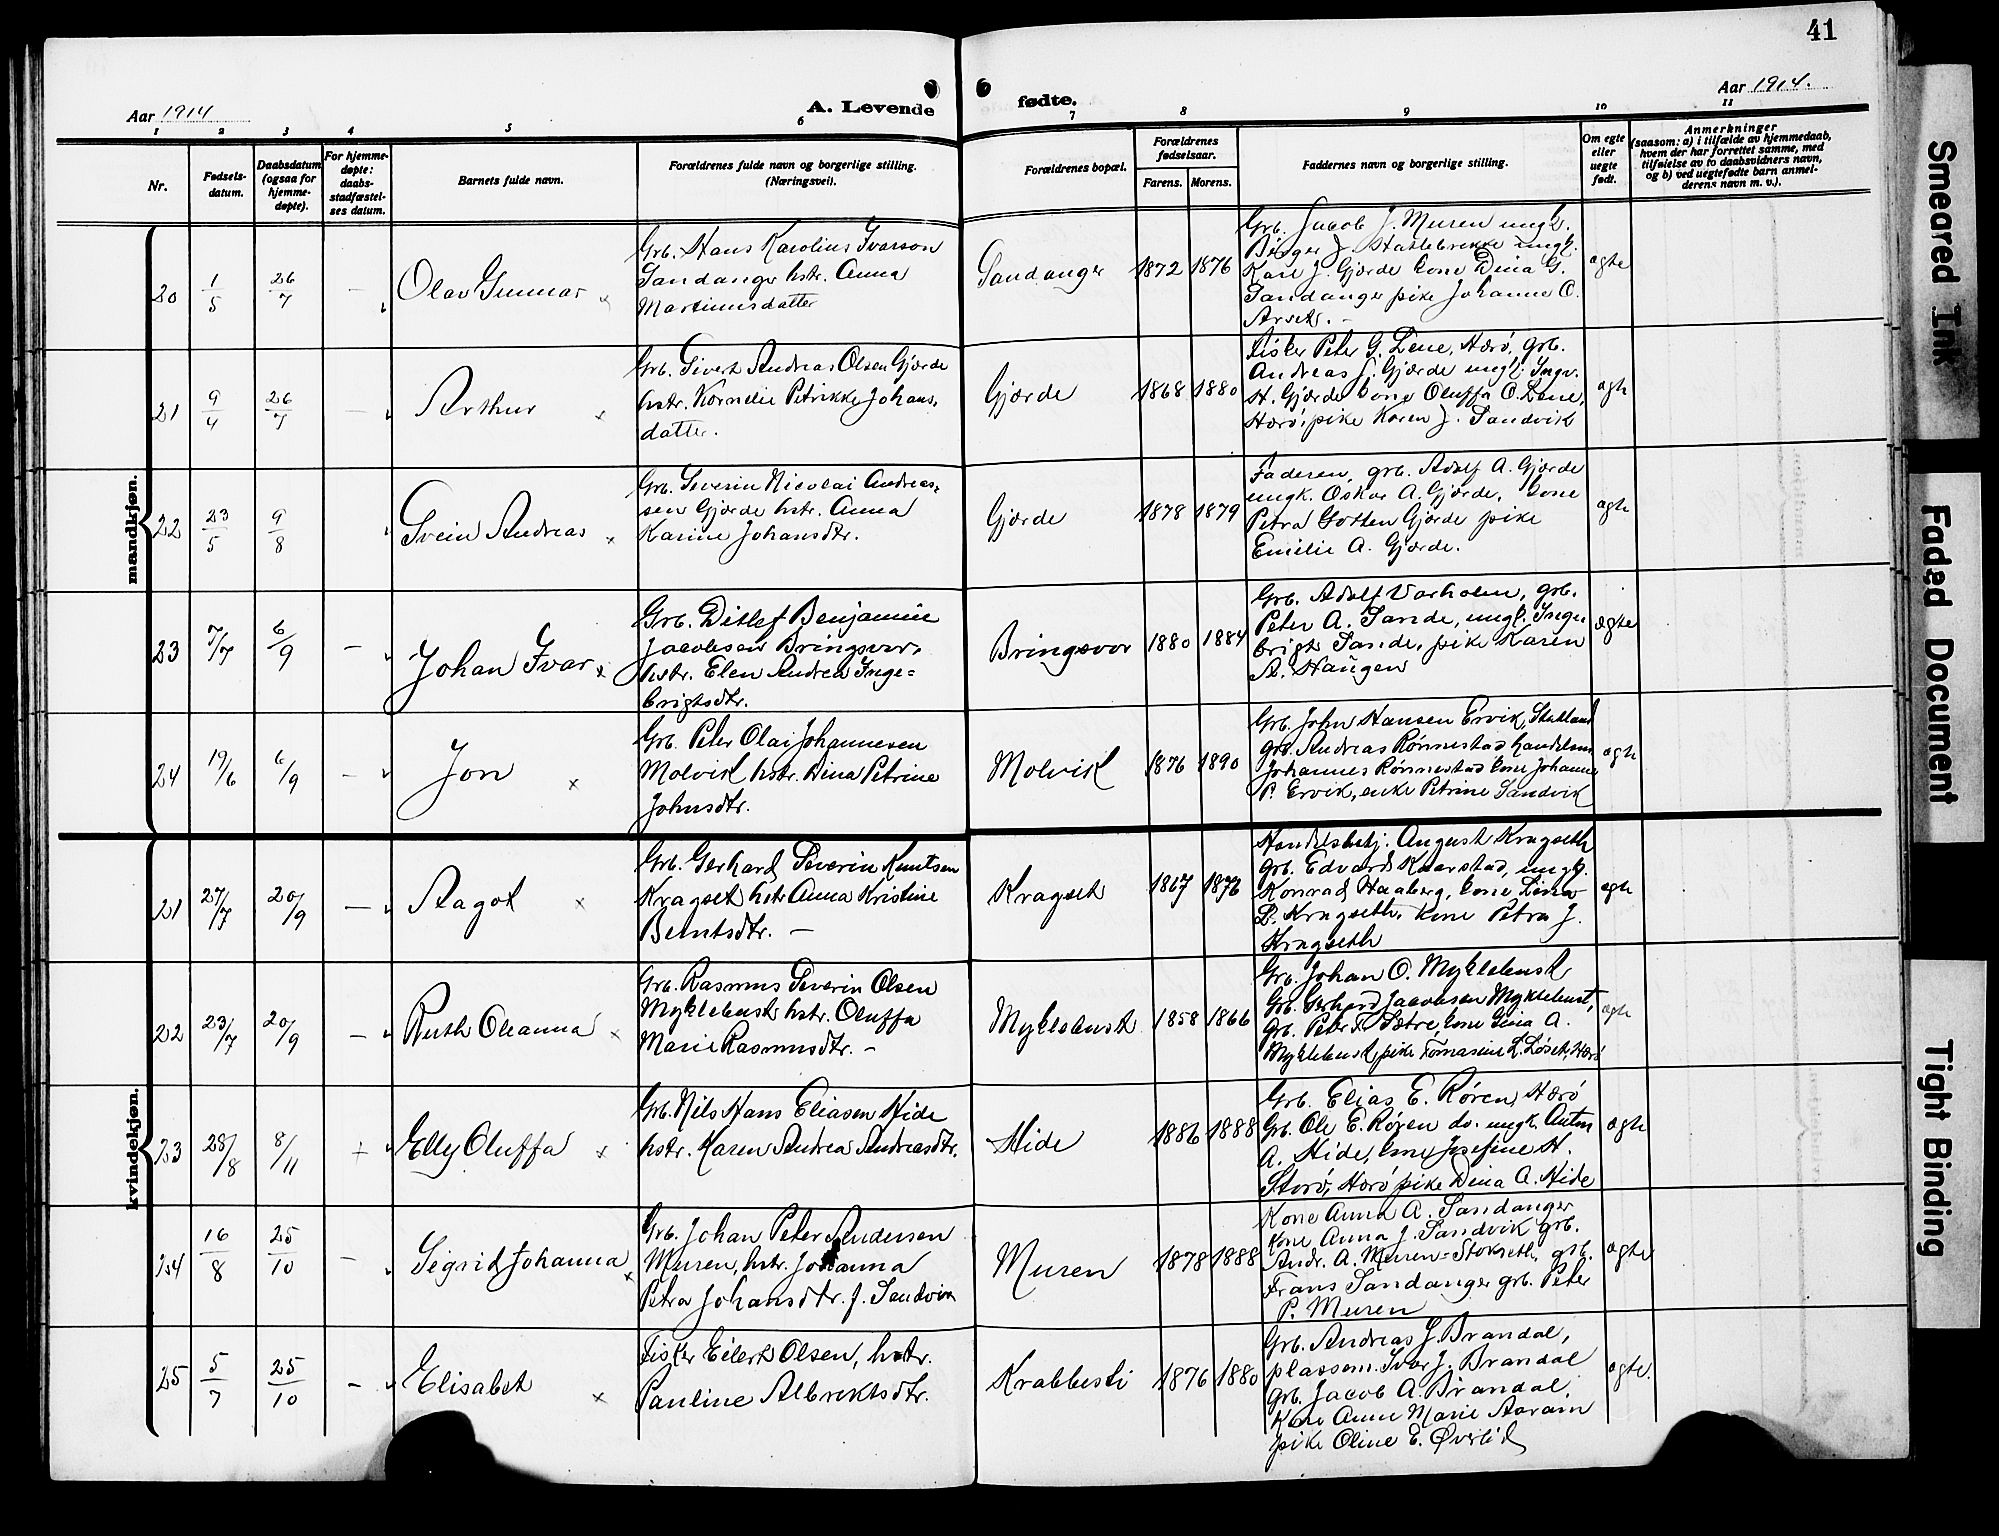 41
Aar 1914
A. Levende
fødte.
Aar 1914.
1 2 3 4 5 6 7 8 9 10 11
Nr.
Fødsels-
datum.
Daabsdatum
(ogsaa for
hjemme-
døpte).
For hjemme-
døpte:
daabs-
stadfæstel-
ses datum.
Barnets fulde navn.
Forældrenes fulde navn og borgerlige stilling.
(Næringsvei).
Forældrenes bopæl.
Forældrenes
fødselsaar.
Farens. Morens.
Faddernes navn og borgerlige stilling.
Om egte
eller
uegte
født.
Anmerkninger
(saasom: a) i tilfælde av hjemmedaab,
hvem der har forrettet samme, med
tilføielse av to daabsvidners navn,
og b) ved uegtefødte barn anmel-
derens navn m. v.).
mandkjøn.
20 1/5 26/7 — Olav Gunnar
Grb. Hans Karolius Ivarson
Sandanger hstr. Anna
Martinusdatter
Sandanger 1872 1876
Grb. Jacob J. Muren ungk.
Birger J. Hattebrekke ungk.
Kari J. Gjerde kone Dina G.
Sandanger pike Johanne O.
Arset. –
egte
21 9/4 26/7 — Arthur
Grb. Sivert Andreas Olsen Gjerde
hstr. Kornelie Petrikke Johans-
datter.
Gjerde 1868 1880
Fisker Peter G. Lene, Herø, grb.
Andreas S. Gjerde ungk. Ingv.
H. Gjerde kone Oluffa O. Lene,
Herø, pike Karen J. Sandvik
egte
22 23/5 9/8 Svein Andreas
Grb. Severin Nicolai Andreas-
sen Gjerde hstr. Anna
Karine Johansdtr.
Gjerde 1878 1879
Faderen, grb. Adolf A. Gjerde
ungk. Oskar A. Gjerde, kone
Petra Gotten Gjerde pike
Emilie A. Gjerde.
egte
23 7/7 6/9 — Johan Ivar
Grb. Ditlef Benjamin
Jacobsen Bringsvor,
hstr. Elen Andrea Inge-
brigtsdtr.
Bringsvor 1880 1884
Grb. Adolf Varholm, grb.
Peter A. Sande, ungk. Inge
brigt Sande, pike Karen
A. Haugen
egte
24 19/6 6/9 — Jon
Grb. Peter Olai Johannesen
Molvik hstr. Dina Petrine
Johnsdtr.
Molvik 1876 1890
Grb. John Hansen Ervik, Statland
grb. Andreas Rønnestad handelsm.
Johannes Rønnestad kone Johanne
P. Ervik, enke Petrine Sandvik
egte
kvindekjøn.
21 27/7 20/9 — Aagot
Grb. Gerhard Severin Knutsen
Kragset hstr. Anna Kristine
Berntsdtr. —
Kragset 1867 1876
Handelsbetj. August Kragseth
grb. Edvard Kaarstad, ungk.
Konrad Haaberg, kone Lina
L. Kragseth, kone Petra J.
Kragseth
egte
22 23/7 20/9 — Ruth Oleanna
Grb. Rasmus Severin Olsen
Myklebust hstr. Oluffa
Marie Rasmusdtr. –
Myklebust 1858 1866
Grb. Johan O. Myklebust,
Grb. Gerhard Jacobsen Myklebust,
grb. Peter F. Sætre, kone Gina A.
Myklebust, pike Tomasine L. Løset, Herø
egte
23 28/8 8/11 Elly Oluffa
Grb. Nils Hans Eliasen Hide
hstr. Karen Andrea Andreasdtr.
Hide 1886 1888
Grb. Elias E. Røren, Herø
Grb. Ole E. Røren do. ungk. Anton
A. Hide, kone Josefine H.
Storø, Herø pike Dina A. Hide
egte
24 16/8 25/10 — Sigrid Johanna
Grb. Johan Peter Andersen
Muren, hstr. Johanna
Petra Johansdtr. f. Sandvik
Muren 1878 1888
Kone Anna A. Sandanger
Kone Anna J. Sandvik grb.
Andr. A. Muren-Stokseth, grb.
Frans Sandanger grb. Peter
P. Muren
egte
25 5/7 25/10 — Elisabet
Fisker Eilert Olsen, hstr.
Pauline Albrektsdtr.
Krabbesti 1876 1880
Grb. Andreas J. Brandal,
plassem. Ivar J. Brandal
grb. Jacob A. Brandal,
Kone Anne Marie Aaram
pike Oline E. Øverlid
egte.
Smeared Ink
Faded Document
Tight Binding